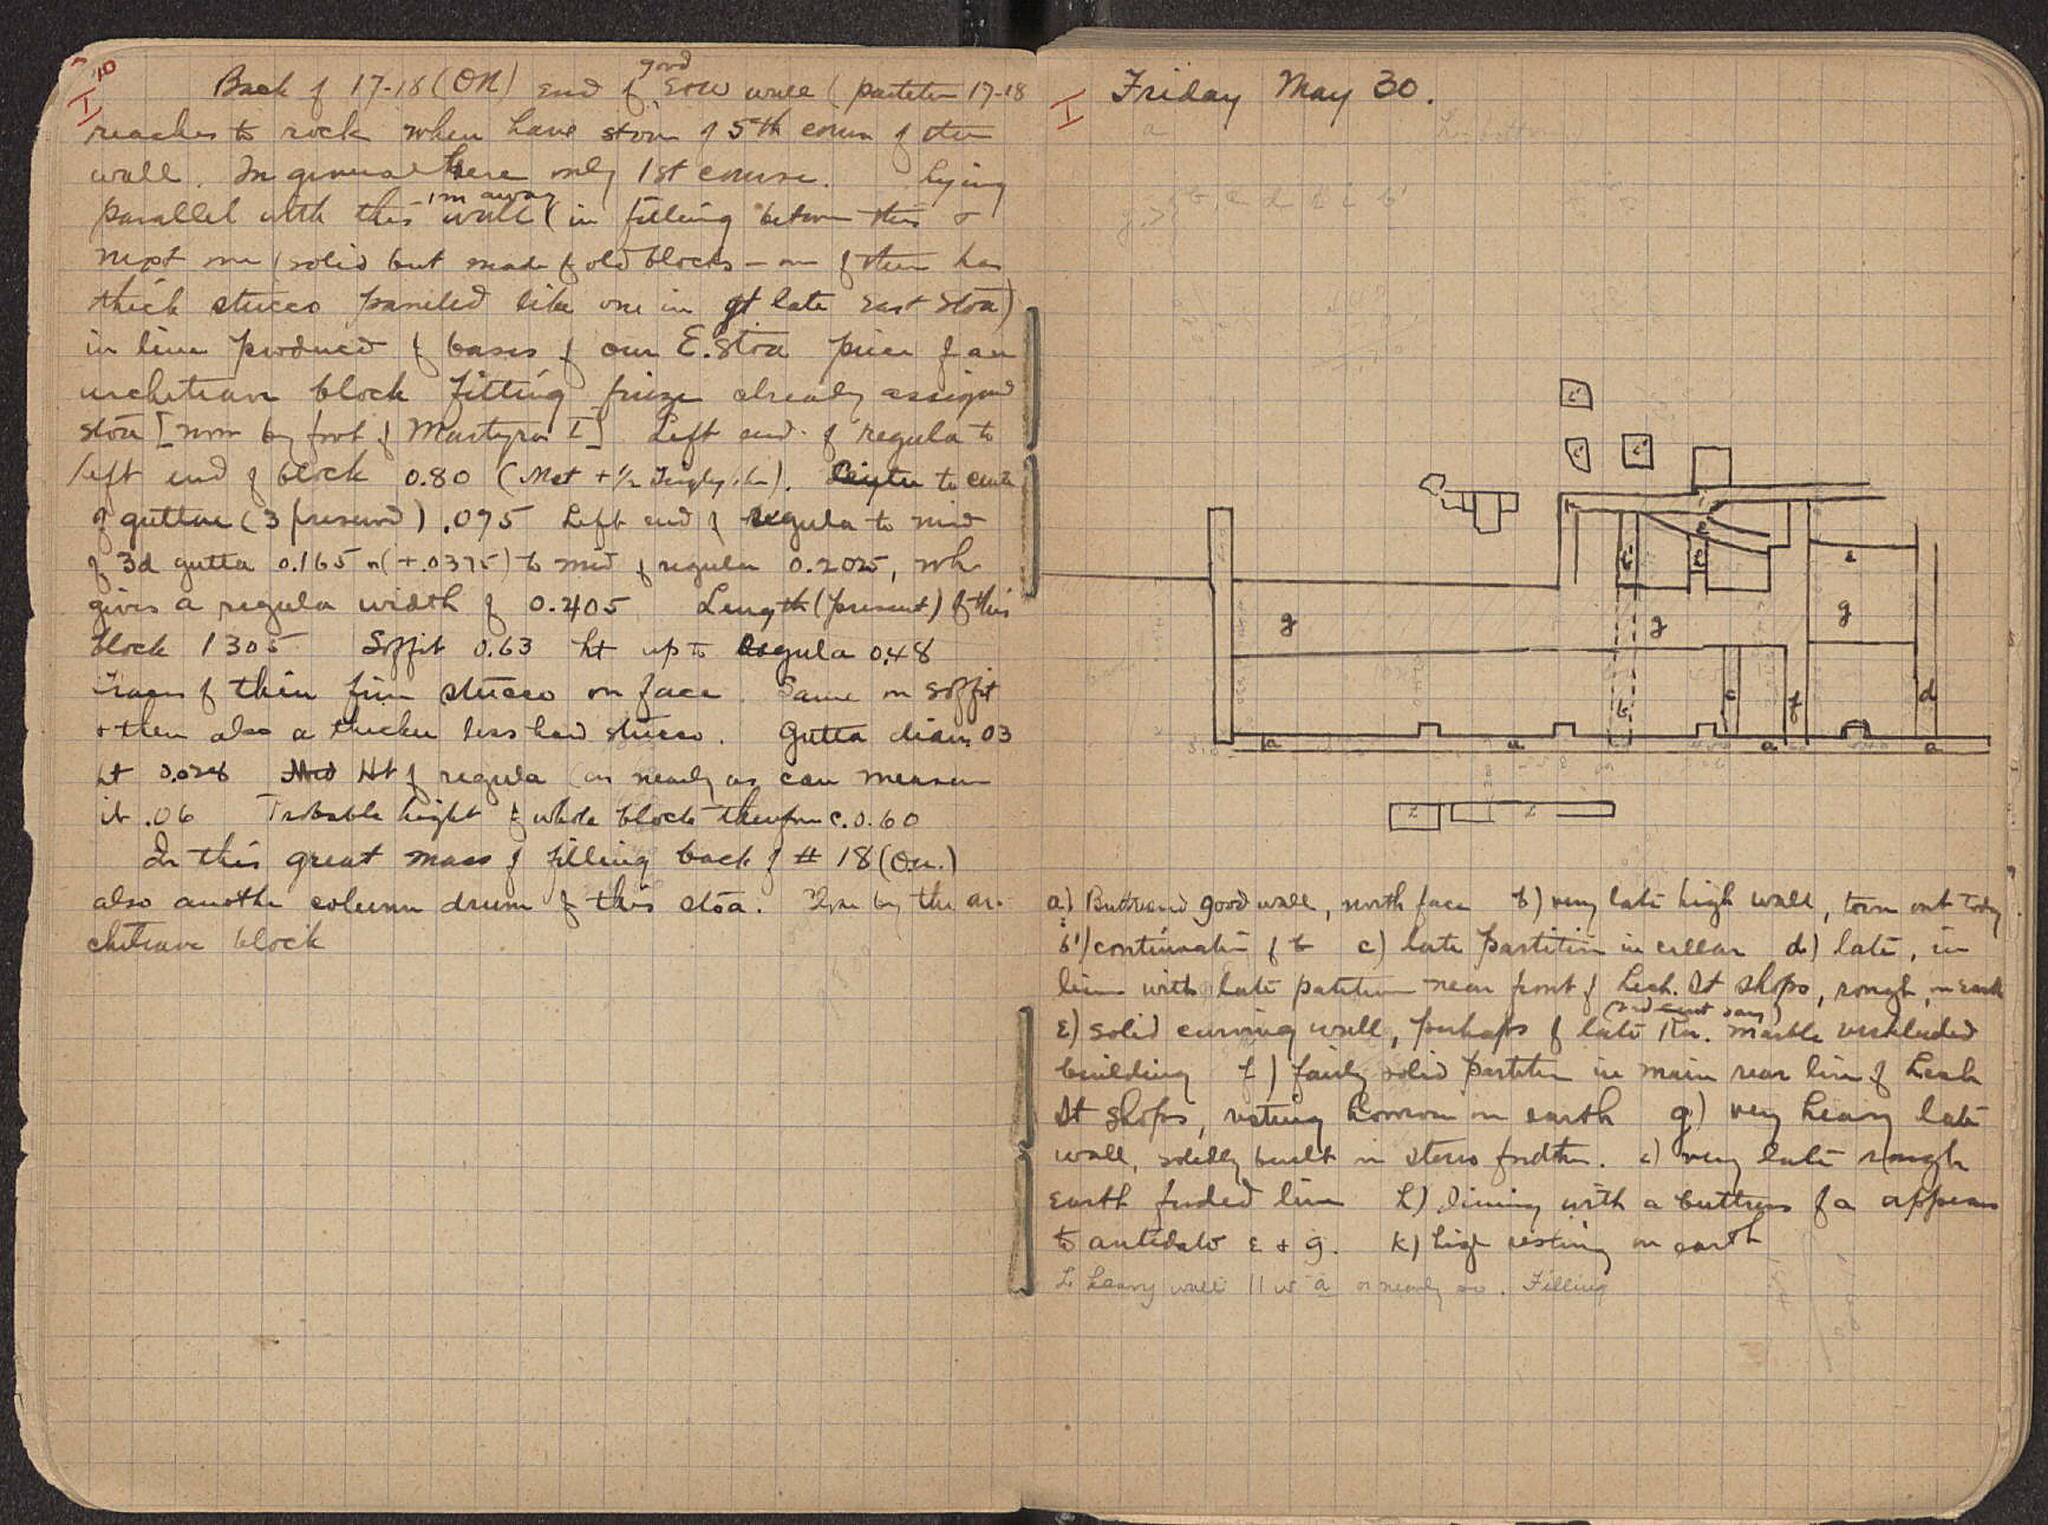 I 10
Back of 17-18 (ON) End of good E→W wall (partition 17-18
reaches to rock when have stone of 5th course of the
wall. In general here only 1st course. Lying
parallel with this wall 1m away (in filling between this +
next one (solid but made of old blocks — one of them has
thick stucco paneled like one in gt late East Stoa)
in line produced of bases of our E. Stoa piece of an
architrave block fitting frieze already assigned
stoa [now by foot of Martyrs I] Left end of regula to
left end of block 0.80 (Met + ½ Triglyph). Center to center
of guttae (3 preserved) .075 Left end of regula to mid
of 3d gutta 0.165 (+.0375) to mid of regula 0.2025, wh
gives a regula width of 0.405 Length (present) of this
block 1 305 Soffit 0.63 ht up to Regula 0.48
Traces of thin fine stucco on face. Same on soffit
+ then also a thicker less hard stucco. Gutta diam. 03
ht 0.028 Ht of regula (as nearly as can measure
it .06 Probable height of whole block therefore c. 0.60
In this great mass of filling back of # 18 (On.)
also another column drum of this stoa. by the ar-
chitrave block
I
Friday May 30.
i'
i' i'
k i
b' e e
g g g
b c f d
a a a a
a) Buttressed good wall, north face b) very late high wall, torn out today
b') continuation of b c) late partition in cellar d) late, in
line with late partition near front of Lech. St shops, rough, on earth
ε) solid curving wall, perhaps of late Rn. marble
building f) fairly solid partition in main rear line of Lech
St shops, resting however on earth g) very heavy late
wall, solidly built in fndtn. i) very late rough
earth line h) lining with a buttress of a appears
to antedate ε + g. k) high resting on earth
L heavy wall || w a or nearly so. Filling